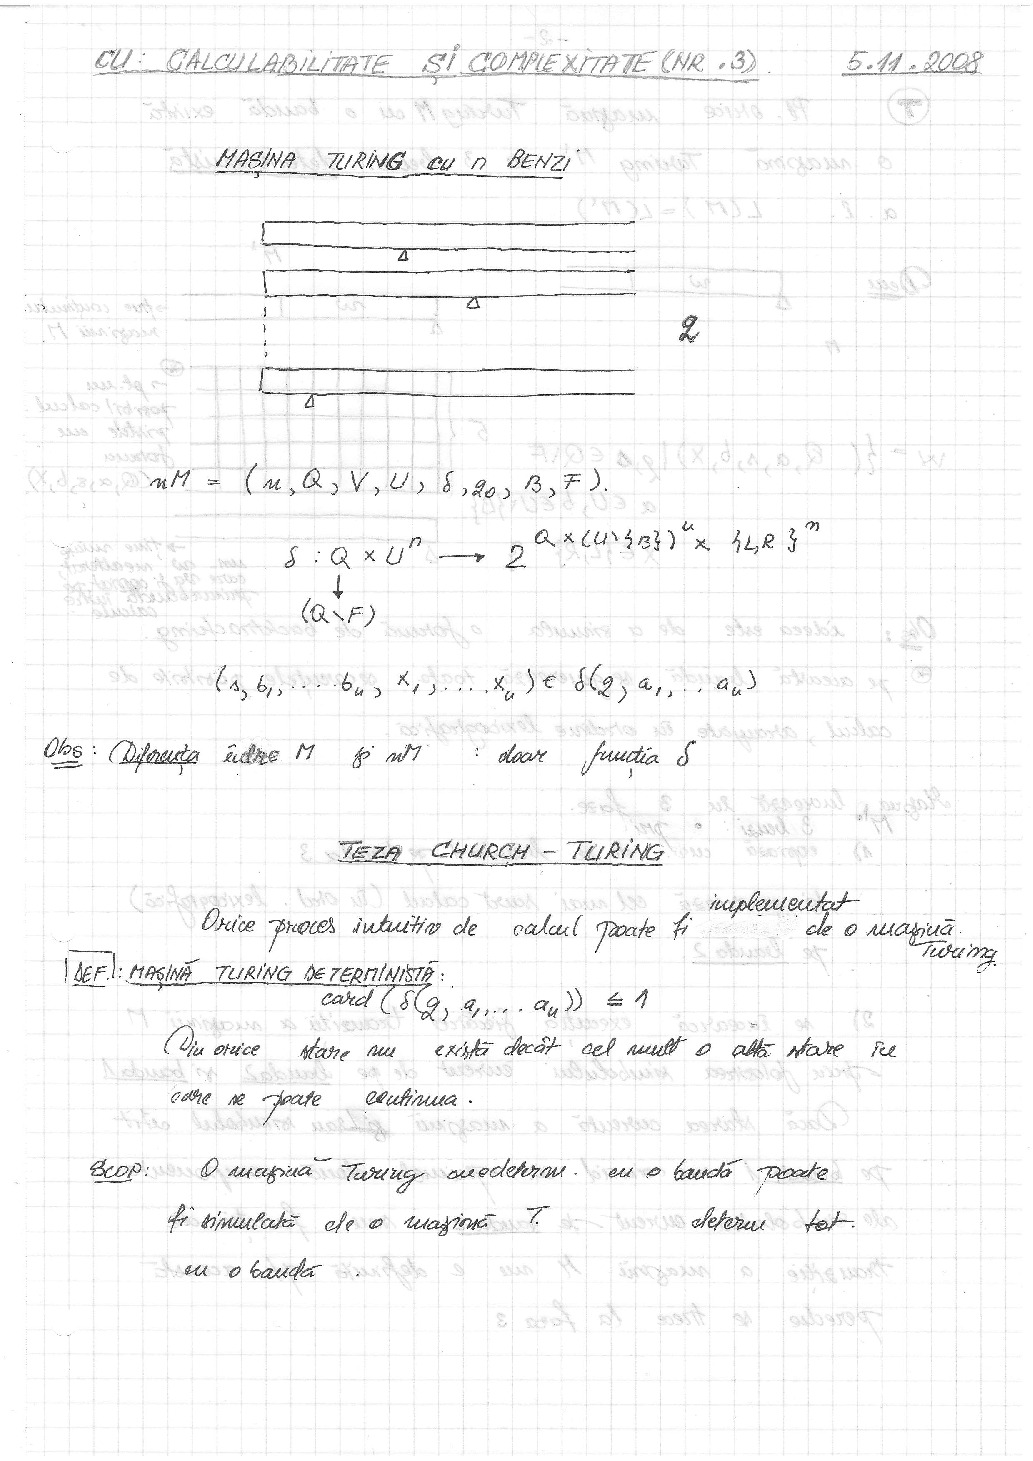 CU: CALCULABILITATE ȘI COMPLEXITATE (NR. 3) 5.11.2008
MAȘINA TURING CU n BENZI
q
nM = (n, Q, V, U, δ, q0, B, F).
δ : Q × Uⁿ → 2^(Q × (U\{B})ⁿ × {L,R}ⁿ)
↓
(Q\F)
(s, b₁, .... bₙ, x₁, .... xₙ) ∈ δ(q, a₁, .. aₙ)
Obs: Diferența între M și nM : doar funcția δ
TEZA CHURCH – TURING
Orice proces intuitiv de calcul poate fi implementat de o mașină Turing.
DEF: MAȘINĂ TURING DETERMINISTĂ:
card (δ(q, a₁, ... aₙ)) ≤ 1
Din orice stare nu există decât cel mult o altă stare în
care se poate continua.
SCOP: O mașină Turing nedeterm. cu o bandă poate
fi simulată de o mașină T. determ tot.
cu o bandă.